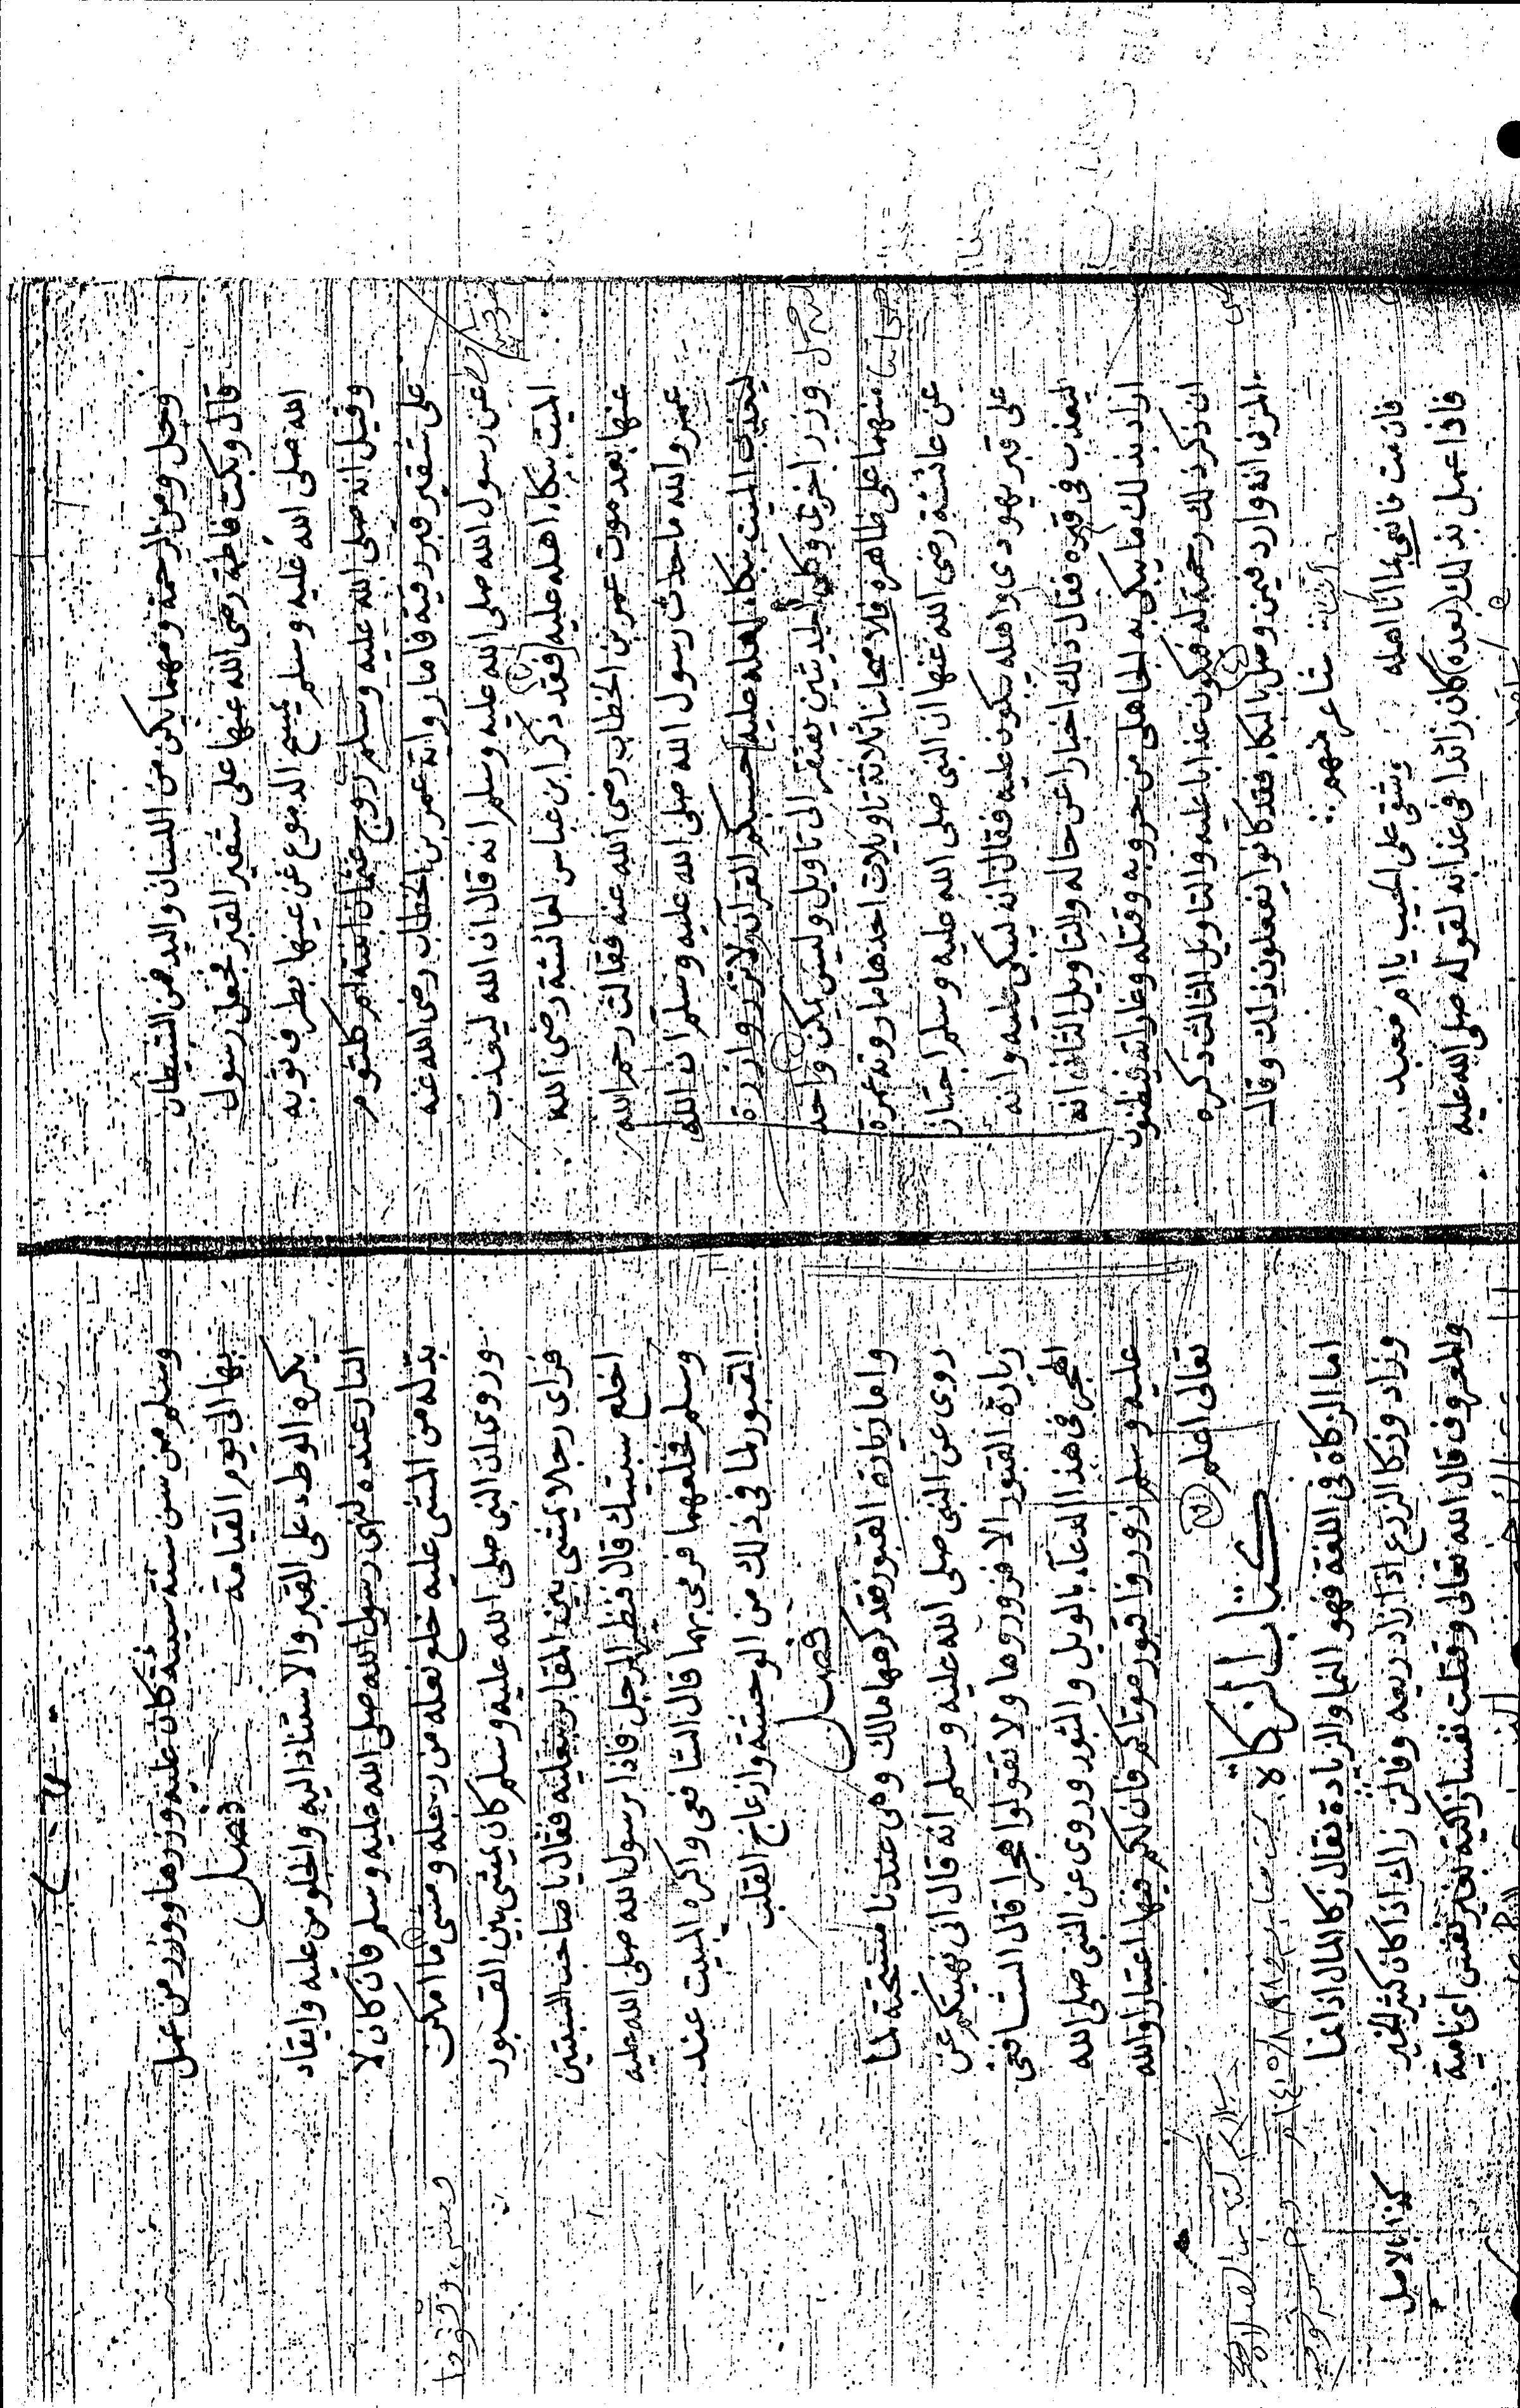 وجل ومن الرحمة ومهما يكن من اللسان واليد فمن الشيطان
قال وبكت فاطمة رضي الله عنها على شفير القبر فجعل رسول
الله صلى الله عليه وسلم يمسح الدموع عن عينها بطرف ثوبه
وقيل انه صلى الله عليه وسلم زوج عثمان ابنته ام كلثوم
على شفير قبر رقية فاما رواية عمر بن الخطاب رضي الله عنه
عن رسول الله صلى الله عليه وسلم انه قال ان الله ليعذب
الميت ببكاء اهله عليه فقد ذكر ابن عباس لعائشة رضي الله
عنها بعد موت عمر بن الخطاب رضي الله عنه فقالت رحم الله
عمر والله ما حدث رسول الله صلى الله عليه وسلم ان الله
ليعذب الميت ببكاء اهله عليه حسبكم القران ولا تزر وازرة
وزر اخرى وكلى الحديثين يفتقر الى تاويل وليس يمكن واحد
منهما على ظاهره فلاصحابنا ثلاثة تاويلات احدها ما روته عمرة
عن عائشة رضي الله عنها ان النبي صلى الله عليه وسلم اجتاز
على قبر يهودى واهله يبكون عليه فقال انه ليبكى عليه وانه
ليعذب في قبره فقال ذلك اخبارا عن حاله والتاويل الثانى انه
اراد بذلك ما يبكى به الجاهلى من حروبه وقتله وغاراته فيظنون
ان ذكر ذلك رحمة له فيكون عذابا عليه والتاويل الثالث ذكره
المزنى انه وارد فيمن وصى بالبكاء فقد كانوا يفعلون ذلك وقال
شاعر منهم
فان مت فانعى بما انا اهله وشقى على الجيب يا ام معبد
فاذا عمل بذلك بعده كان زائدا في عذابه لقوله صلى الله عليه
وسلم من سن سنة سيئة كان عليه وزرها ووزر من عمل
بها الى يوم القيامة فصل
يكره الوطء على القبر والاستناد اليه والجلوس عليه وايقاد
النار عنده لنهى رسول الله صلى الله عليه وسلم فان كان لا
بد له من المشى عليه خلع نعله من رجله ومشى ما امكن
وروى ان النبي صلى الله عليه وسلم كان يمشى بين القبور
فراى رجلا يمشى بين المقابر بنعليه فقال يا صاحب السبتين
اخلع سبتيك قال فنظر الرجل فاذا برسول الله صلى الله عليه
وسلم فخلعهما فرمى بهما قال الشافعى واكره المبيت عند
القبور لما في ذلك من الوحشة وازعاج القلب
فصل
واما زيارة القبور فقد كرهها مالك وهى عندنا مستحبة لما
روى عن النبي صلى الله عليه وسلم انه قال انى نهيتكم عن
زيارة القبور الا فزوروها ولا تقولوا هجرا قال الشافعى
الهجر في هذا الدعاء بالويل والثبور وروى عن النبي صلى الله
عليه وسلم زوروا قبور موتاكم فان لكم فيها اعتبارا والله
تعالى اعلم
كتاب الزكاة
اما الزكاة في اللغة فهو النما والزيادة يقال زكا المال اذا نما
وزاد وزكا الزرع اذا زاد ريعه وفالن زاك اذا كان كثير الخير
والمعروف قال الله تعالى وقتلت نفسا زاكية بغير نفس اى نامية
كذا بالاصل